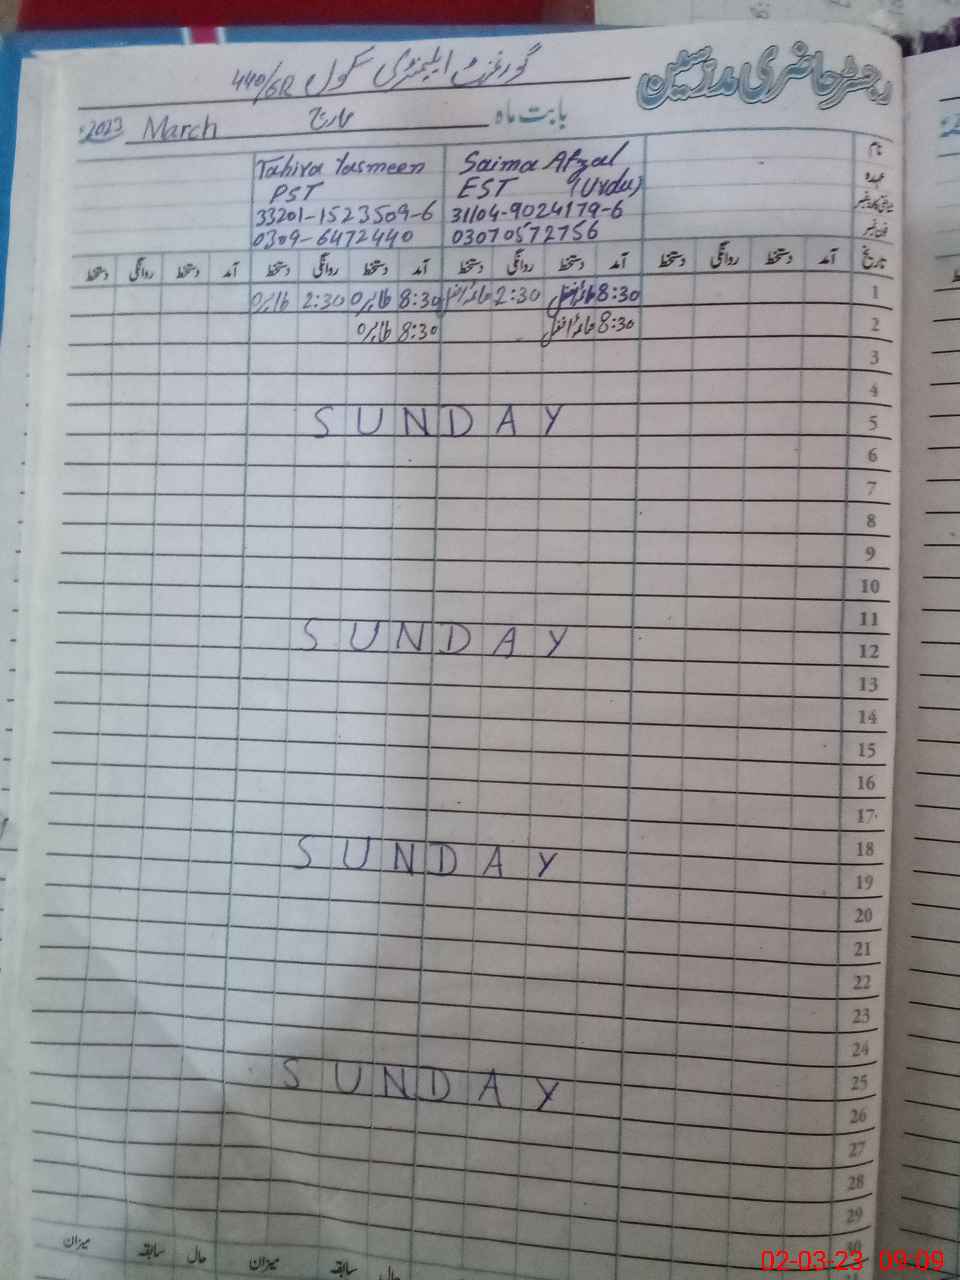 رجسٹر حاضری مدرسین
گورنمنٹ ایلیمنٹری سکول 440/6R
بابت ماہ مارچ March 2023ء
نام Saima Afzal Tahira Yasmeen
عہدہ EST (Urdu) PST
31104-9024179-6 33201-1523509-6
فون نمبر 03070572756 0309-6472440
تاریخ آمد دستخط روانگی دستخط آمد دستخط روانگی دستخط آمد دستخط روانگی دستخط آمد دستخط روانگی دستخط
1 8:30 صائمہ افضل 2:30 صائمہ افضل 8:30 طاہرہ 2:30 طاہرہ
2 8:30 صائمہ افضل 8:30 طاہرہ
3
4
5 SUNDAY
6
7
8
9
10
11
12 SUNDAY
13
14
15
16
17
18
19 SUNDAY
20
21
22
23
24
25 SUNDAY
26
27
28
29
30
حال سابقہ میزان حال سابقہ میزان
02-03-23 09:09